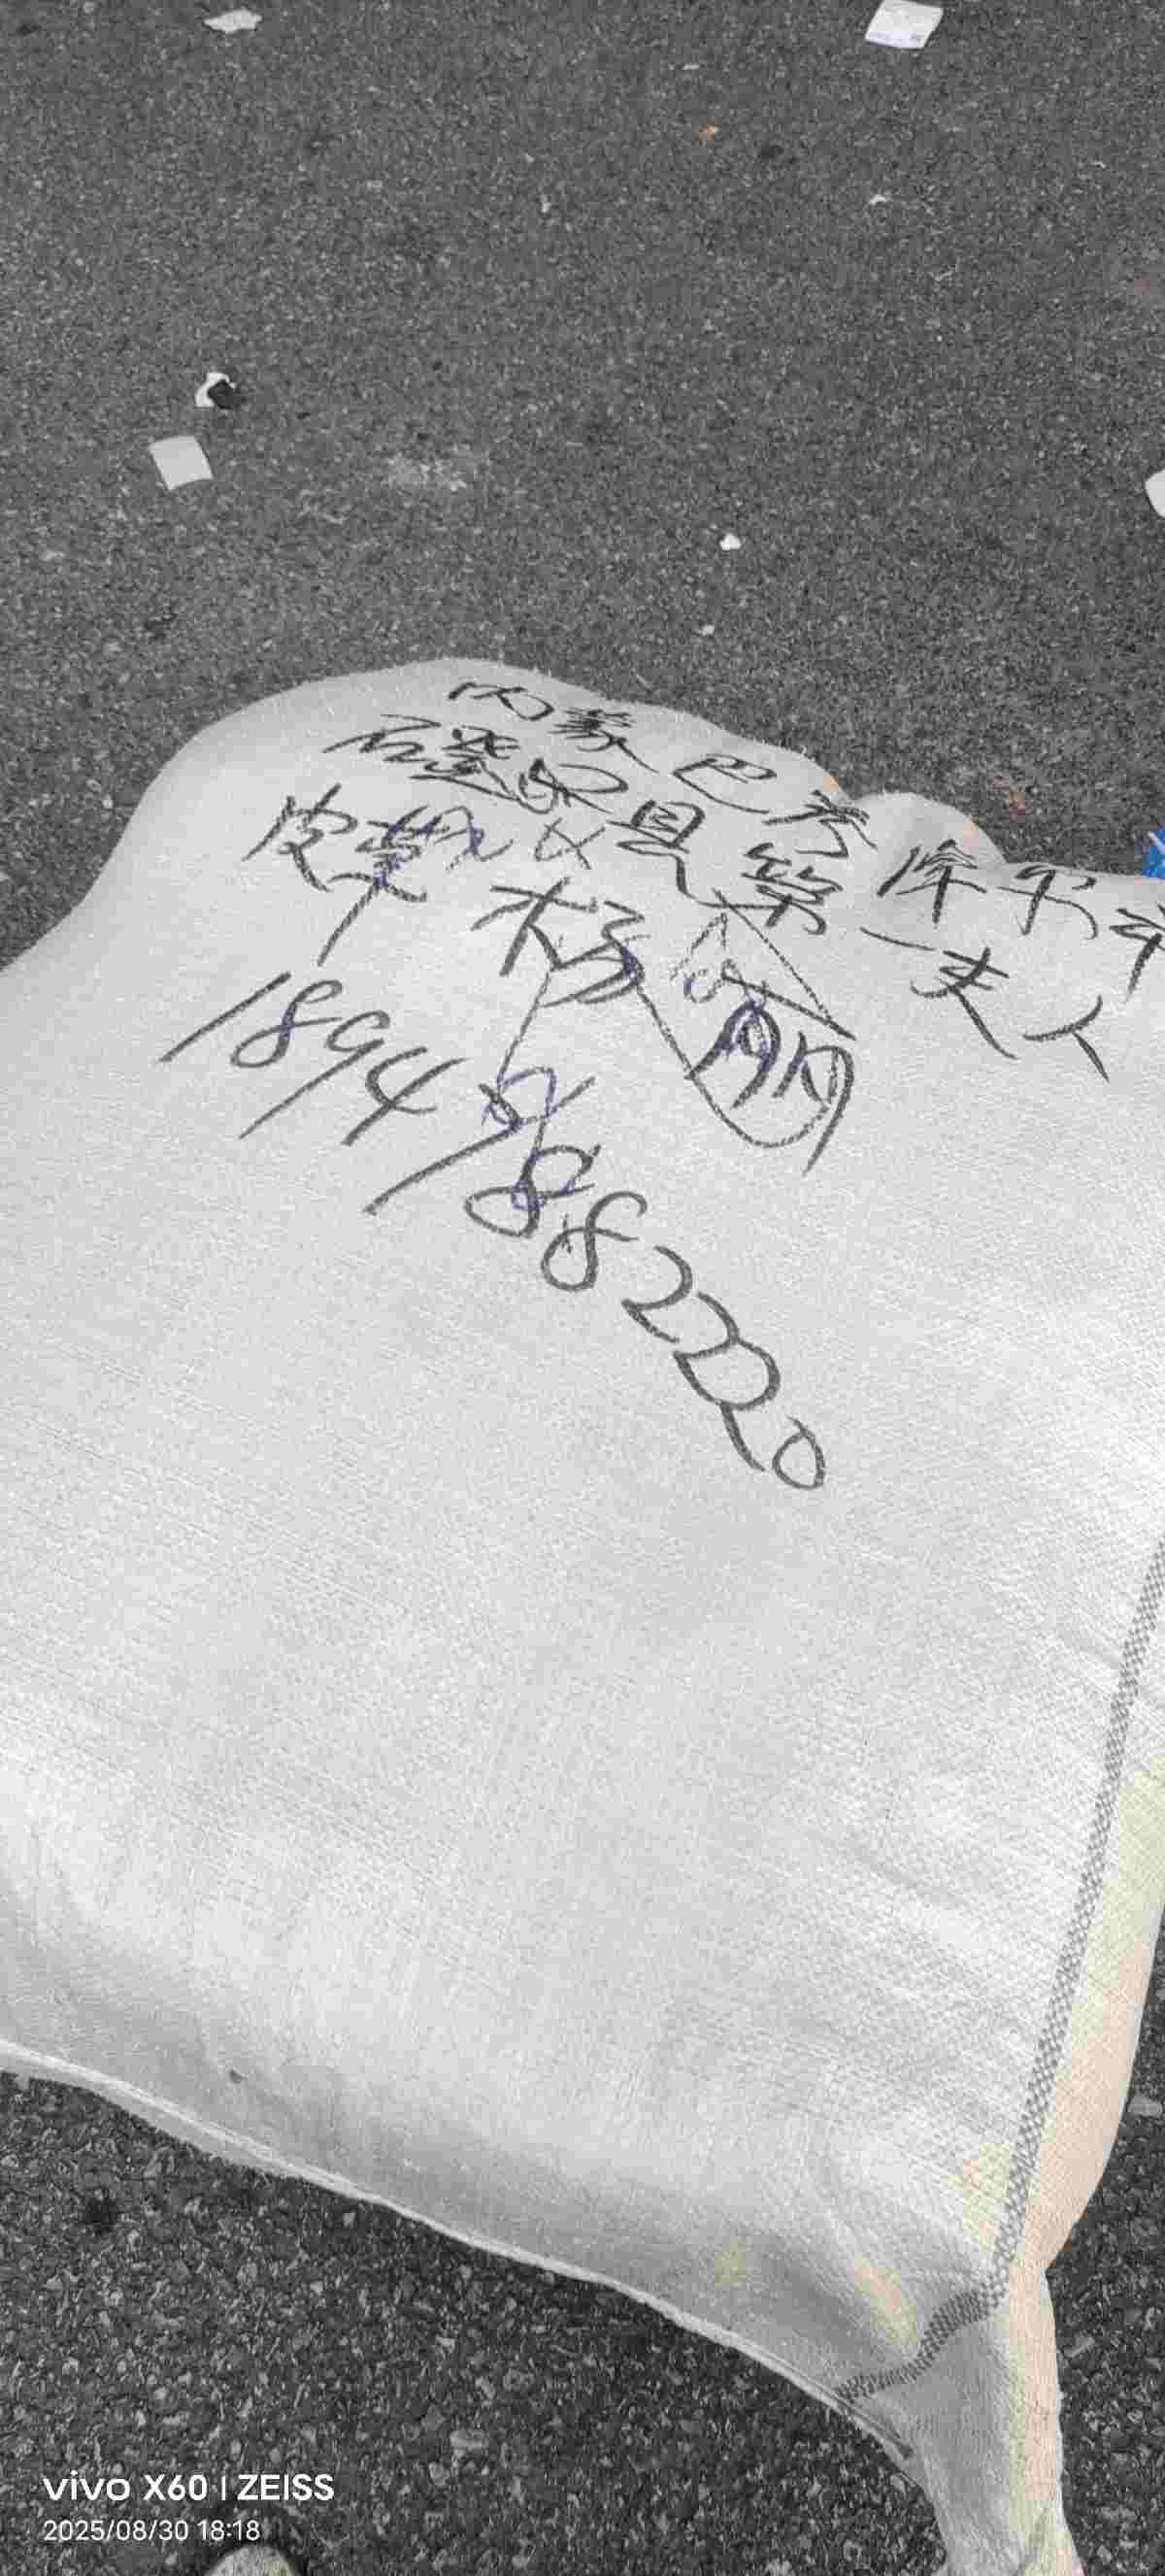 内蒙巴彦淖尔市
磴口县第一夫人
皮草 杨丽
18941882220
vivo X60 | ZEISS
2025/08/30 18:18